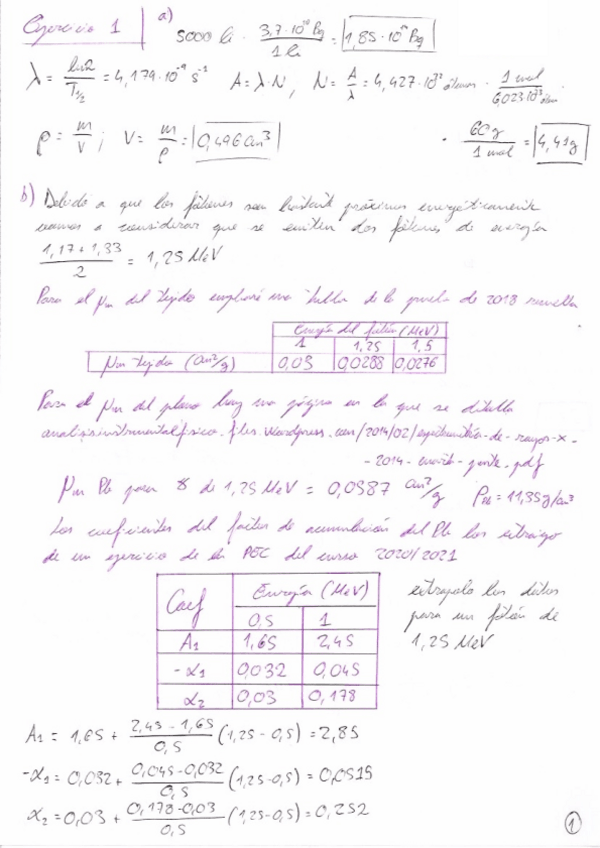 Ejercicio 1
a) 5000 Ci · 3,7·10¹⁰ Bq / 1 Ci = 1,85·10¹⁴ Bq
λ = ln2 / T1/2 = 4,179·10⁻⁹ s⁻¹ A = λ·N ; N = A/λ = 4,427·10²² átomos · 1 mol / 6,023·10²³ átom.
ρ = m/V ; V = m/ρ = 0,496 cm³ · 60 g / 1 mol = 4,41 g
b) Debido a que los fotones son bastant próximos energéticament
vamos a considerar que se emiten dos fotones de energía
1,17 + 1,33 / 2 = 1,25 MeV
Para el μm del tejido emplearé una tabla de la prueba de 2018 resuelta
Energía del fotón (MeV)
1 1,25 1,5
μm tejido (cm²/g) 0,03 0,0288 0,0276
Para el μm del plomo hay una página en la que se detalla
analisisinstrumentalfisico.files.wordpress.com/2014/02/
-2014- -parte-.pdf
μm Pb para γ de 1,25 MeV = 0,0587 cm²/g ρPb = 11,35 g/cm³
Los coeficientes del factor de acumulación del Pb los extraigo
de un ejercicio de la PEC del curso 2020/2021
Coef Energía (MeV)
0,5 1
A1 1,65 2,45
-α1 0,032 0,045
α2 0,03 0,178
extrapolo los datos
para un fotón de
1,25 MeV
A1 = 1,65 + 2,45 - 1,65 / 0,5 (1,25 - 0,5) = 2,85
-α1 = 0,032 + 0,045 - 0,032 / 0,5 (1,25 - 0,5) = 0,0515
α2 = 0,03 + 0,178 - 0,03 / 0,5 (1,25 - 0,5) = 0,252
1